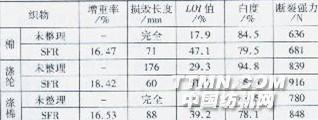 织物 增重率/% 损毁长度/mm LOI值/% 白度/% 断裂强力/N
棉 未整理 - 完全 17.9 84.5 636
SFR 16.47 71 47.1 79.5 681
涤纶 未整理 - 176 29.3 94.8 839
SFR 18.42 60 916
涤棉 未整理 - 完全 780
SFR 16.53 88 39.2 78.1 848
中国纺机网
www.ttmn.com